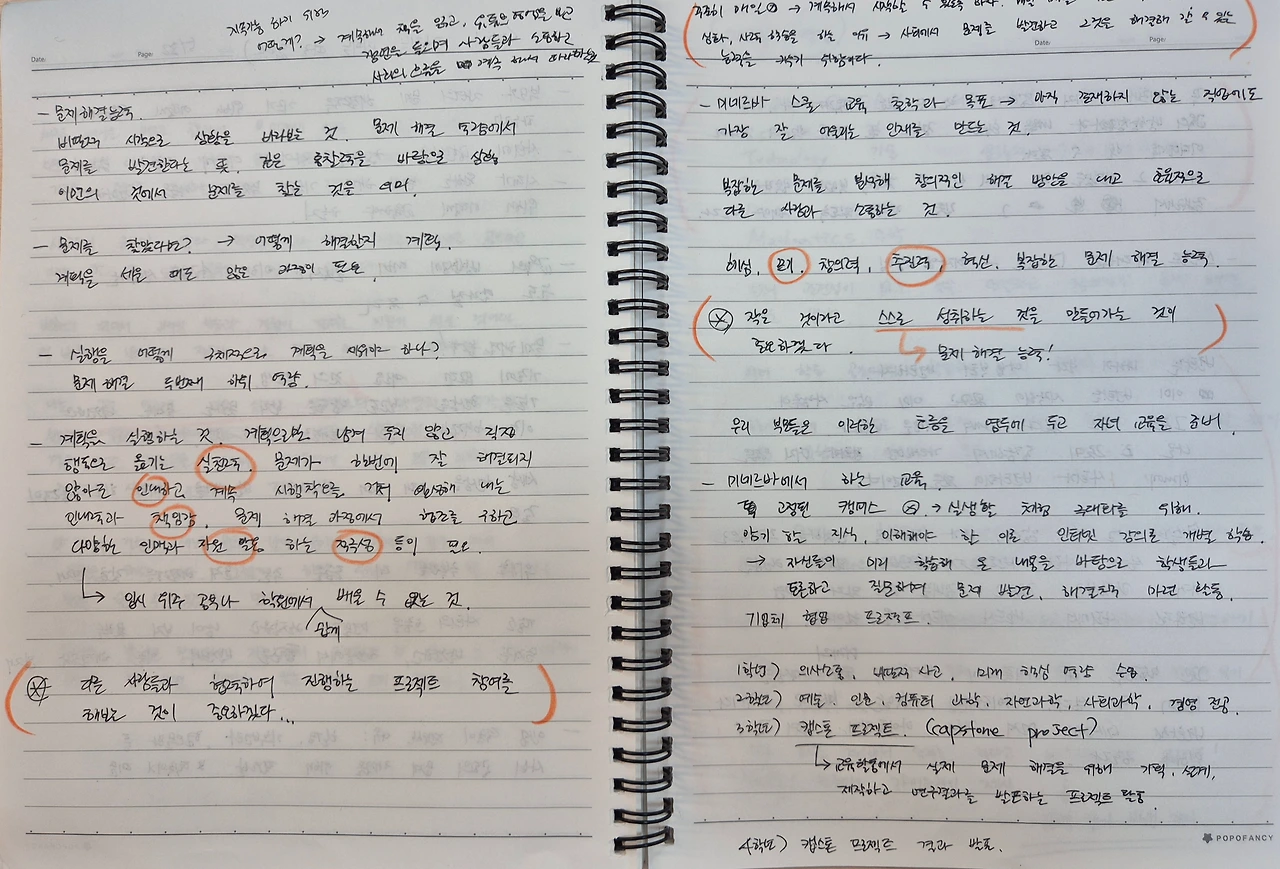 지속가능 하기 위해
어떻게? → 계속해서 책을 읽고, 유튜브 영상을 보고
강연을 들으며 사람들과 소통하고
사회의 흐름을 계속 해서 따라가는
Date: Page:
- 문제해결능력.
비판적 시각으로 상황을 바라보는 것. 문제 해결 과정에서
문제를 발견한다는 뜻. 깊은 통찰력을 바탕으로 상황
이면의 것에서 문제를 찾는 것을 의미.
- 문제를 찾았다면? → 어떻게 해결할지 계획.
계획을 세울 때도 많은 과정이 필요.
- 실행을 어떻게 구체적으로 계획을 세워야 하나?
문제 해결 두번째 하위 역량.
- 계획을 실행하는 것. 계획으로만 남겨 두지 않고 직접
행동으로 옮기는 실천력. 문제가 한번에 잘 해결되지
않아도 인내하고 계속 시행착오를 거쳐 완성해 내는
인내력과 책임감. 문제 해결 과정에서 협조를 구하고
다양한 인맥과 자원 활용 하는 적극성 등이 필요.
↳ 입시 위주 공부나 학원에서 배울 수 없는 것.
쉽게
⊗ 다른 사람들과 협력하여 진행하는 프로젝트 참여를
해보는 것이 중요하겠다...
꾸준히 매일 → 계속해서 시작할 수 있도록
심화, 사회 활동을 하는 이유 → 사회에서 문제를 발견하고 그것을 해결해 갈 수 있는
Date: Page:
능력을 키우기 위함이다.
- 미네르바 스쿨 교육 철학과 목표 → 아직 존재하지 않는 직업에도
가장 잘 어울리는 인재를 만드는 것.
복잡한 문제를 분석해 창의적인 해결 방안을 내고 효율적으로
다른 사람과 소통하는 것.
핵심. 끈기, 창의력, 추진력, 혁신, 복잡한 문제 해결 능력.
⊗ 작은 것이라고 스스로 성취하는 것을 만들어가는 것이
중요하겠다. ↳ 문제 해결 능력!
우리 부모들은 이러한 흐름을 염두에 두고 자녀 교육을 준비.
- 미네르바에서 하는 교육.
고정된 캠퍼스 ⊗ → 실생활 체험 극대화를 위해.
암기 할 지식, 이해해야 할 이론 인터넷 강의로 개별 학습.
→ 자신들이 미리 학습해 온 내용을 바탕으로 학생들과
토론하고 질문하며 문제 발견, 해결책 마련 활동.
기업체 협업 프로젝트.
1학년) 의사소통, 비판적 사고, 미래 핵심 역량 수업.
2학년) 예술, 인문, 컴퓨터 과학, 자연과학, 사회과학, 경영 전공.
3학년) 캡스톤 프로젝트. (capstone project)
↳ 교육활동에서 실제 문제 해결을 위해 기획, 설계,
제작하고 연구결과를 발표하는 프로젝트 활동.
POPOFANCY
4학년) 캡스톤 프로젝트 결과 발표.